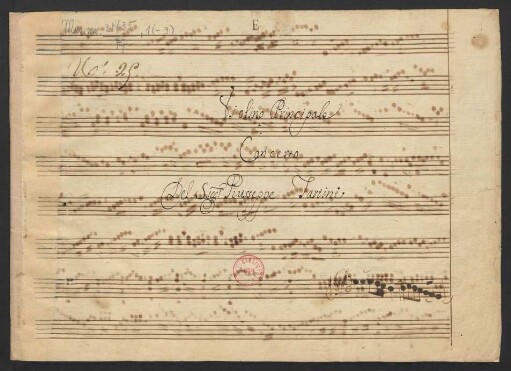 E
No: 25.
Violino Principale
Concerto
Del Sigr Giuseppe Tartini